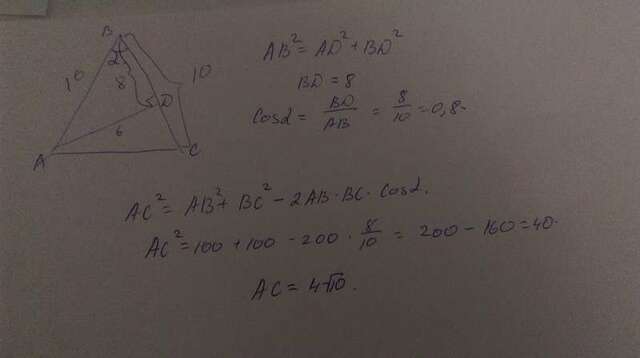 B
α
10
8
10
D
6
A
C
AB² = AD² + BD²
BD = 8
Cosα = BD/AB = 8/10 = 0,8.
AC² = AB² + BC² - 2AB · BC · Cosα.
AC² = 100 + 100 - 200 · 8/10 = 200 - 160 = 40.
AC = 4√10.